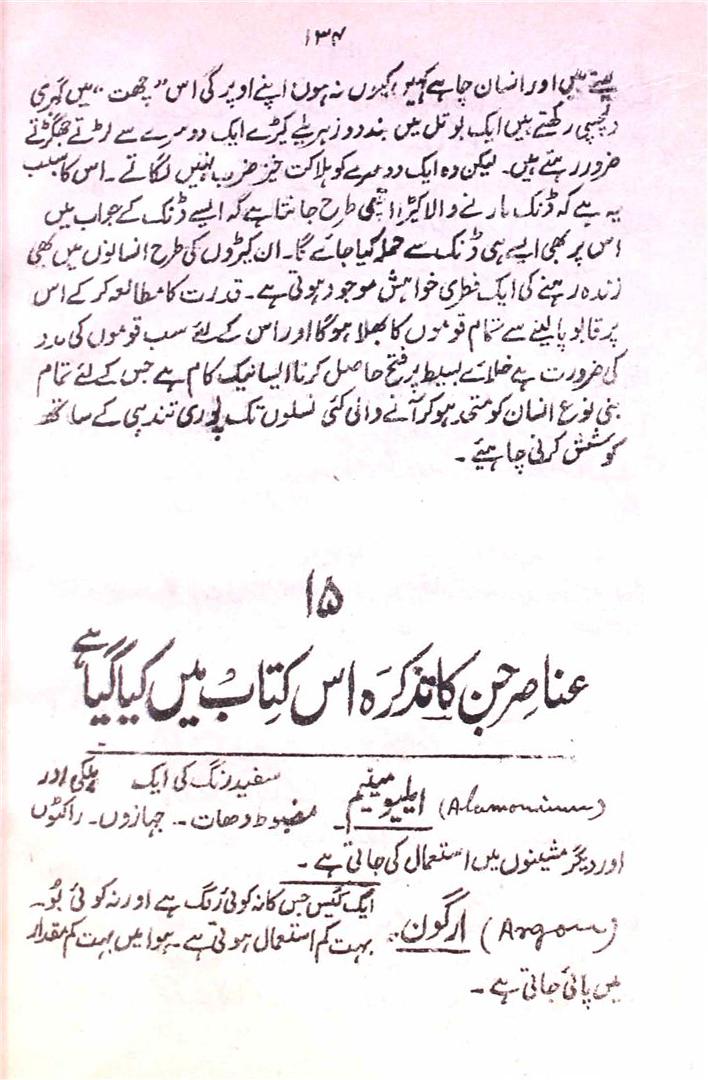 ۱۳۴
بستے ہیں اور انسان چاہے کہیں کیوں نہ ہوں اپنے اوپر کی اس "چھت" میں گہری
دلچسپی رکھتے ہیں ایک بوتل میں بند دو زہریلے کیڑے ایک دوسرے سے لڑتے جھگڑتے
ضرور رہتے ہیں۔ لیکن وہ ایک دوسرے کو ہلاکت خیز ضرب نہیں لگاتے۔ اس کا سبب
یہ ہے کہ ڈنک مارنے والا کیڑا اچھی طرح جانتا ہے کہ ایسے ڈنک کے جواب میں
اس پر بھی ایسے ہی ڈنک سے حملہ کیا جائے گا۔ ان کیڑوں کی طرح انسانوں میں بھی
زندہ رہنے کی ایک فطری خواہش موجود ہوتی ہے۔ قدرت کا مطالعہ کر کے اس
پر قابو پالینے سے تمام قوموں کا بھلا ہوگا اور اس کے لئے سب قوموں کی مدد
کی ضرورت ہے خلائے بسیط پر فتح حاصل کرنا ایسا نیک کام ہے جس کے لئے تمام
بنی نوع انسان کو متحد ہو کر آنے والی کئی نسلوں تک پوری تندہی کے ساتھ
کوشش کرنی چاہیئے۔
۱۵
عناصر جن کا تذکرہ اس کتاب میں کیا گیا ہے
(Alamonium) ایلیومینیم سفید رنگ کی ایک ہلکی اور
مضبوط دھات۔ جہازوں۔ راکٹوں
اور دیگر مشینوں میں استعمال کی جاتی ہے۔
(Argon) ارگون۔ ایک گیس جس کا نہ کوئی رنگ ہے اور نہ کوئی بُو۔
بہت کم استعمال ہوتی ہے۔ ہوا میں بہت کم مقدار
میں پائی جاتی ہے۔